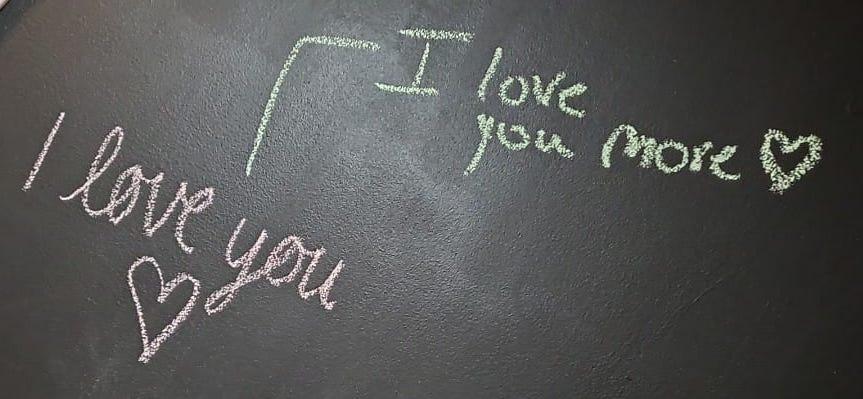 I love you
♡
I love
you more ♡